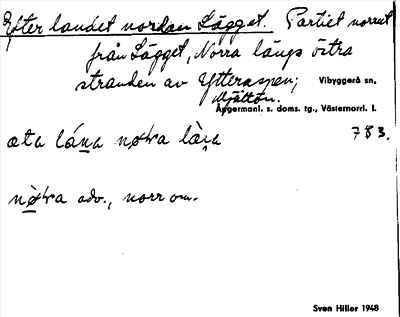 Efter landet nordan Lägget. Partiet norrut
från Lägget, Norra längs östra
stranden av Ytteraspen; Vibyggerå sn,
Mjältön.
Ångermanl. s. doms. tg., Västernorrl. l.
ata lána nøtra làṇa 783.
nø̀tra adv., norr om.
Sven Hiller 1948